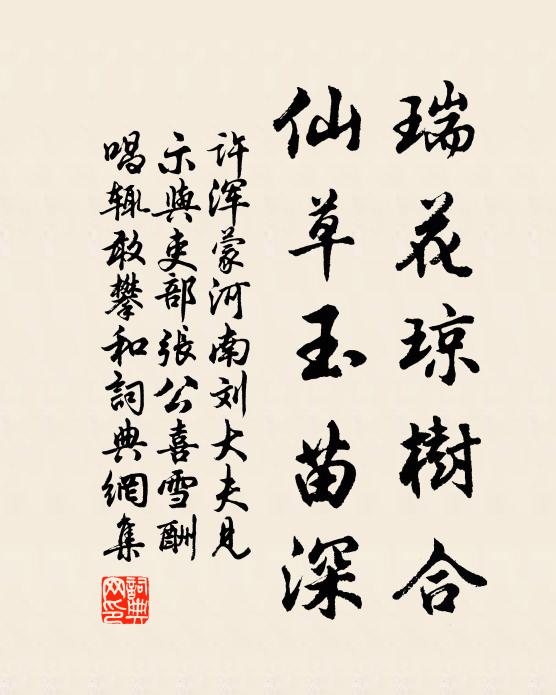 瑞花琼樹合
仙草玉苗深
许浑蒙河南刘大夫見
示與吏部張公喜雪酬
唱辄敢攀和詞典網集
詞典
网印